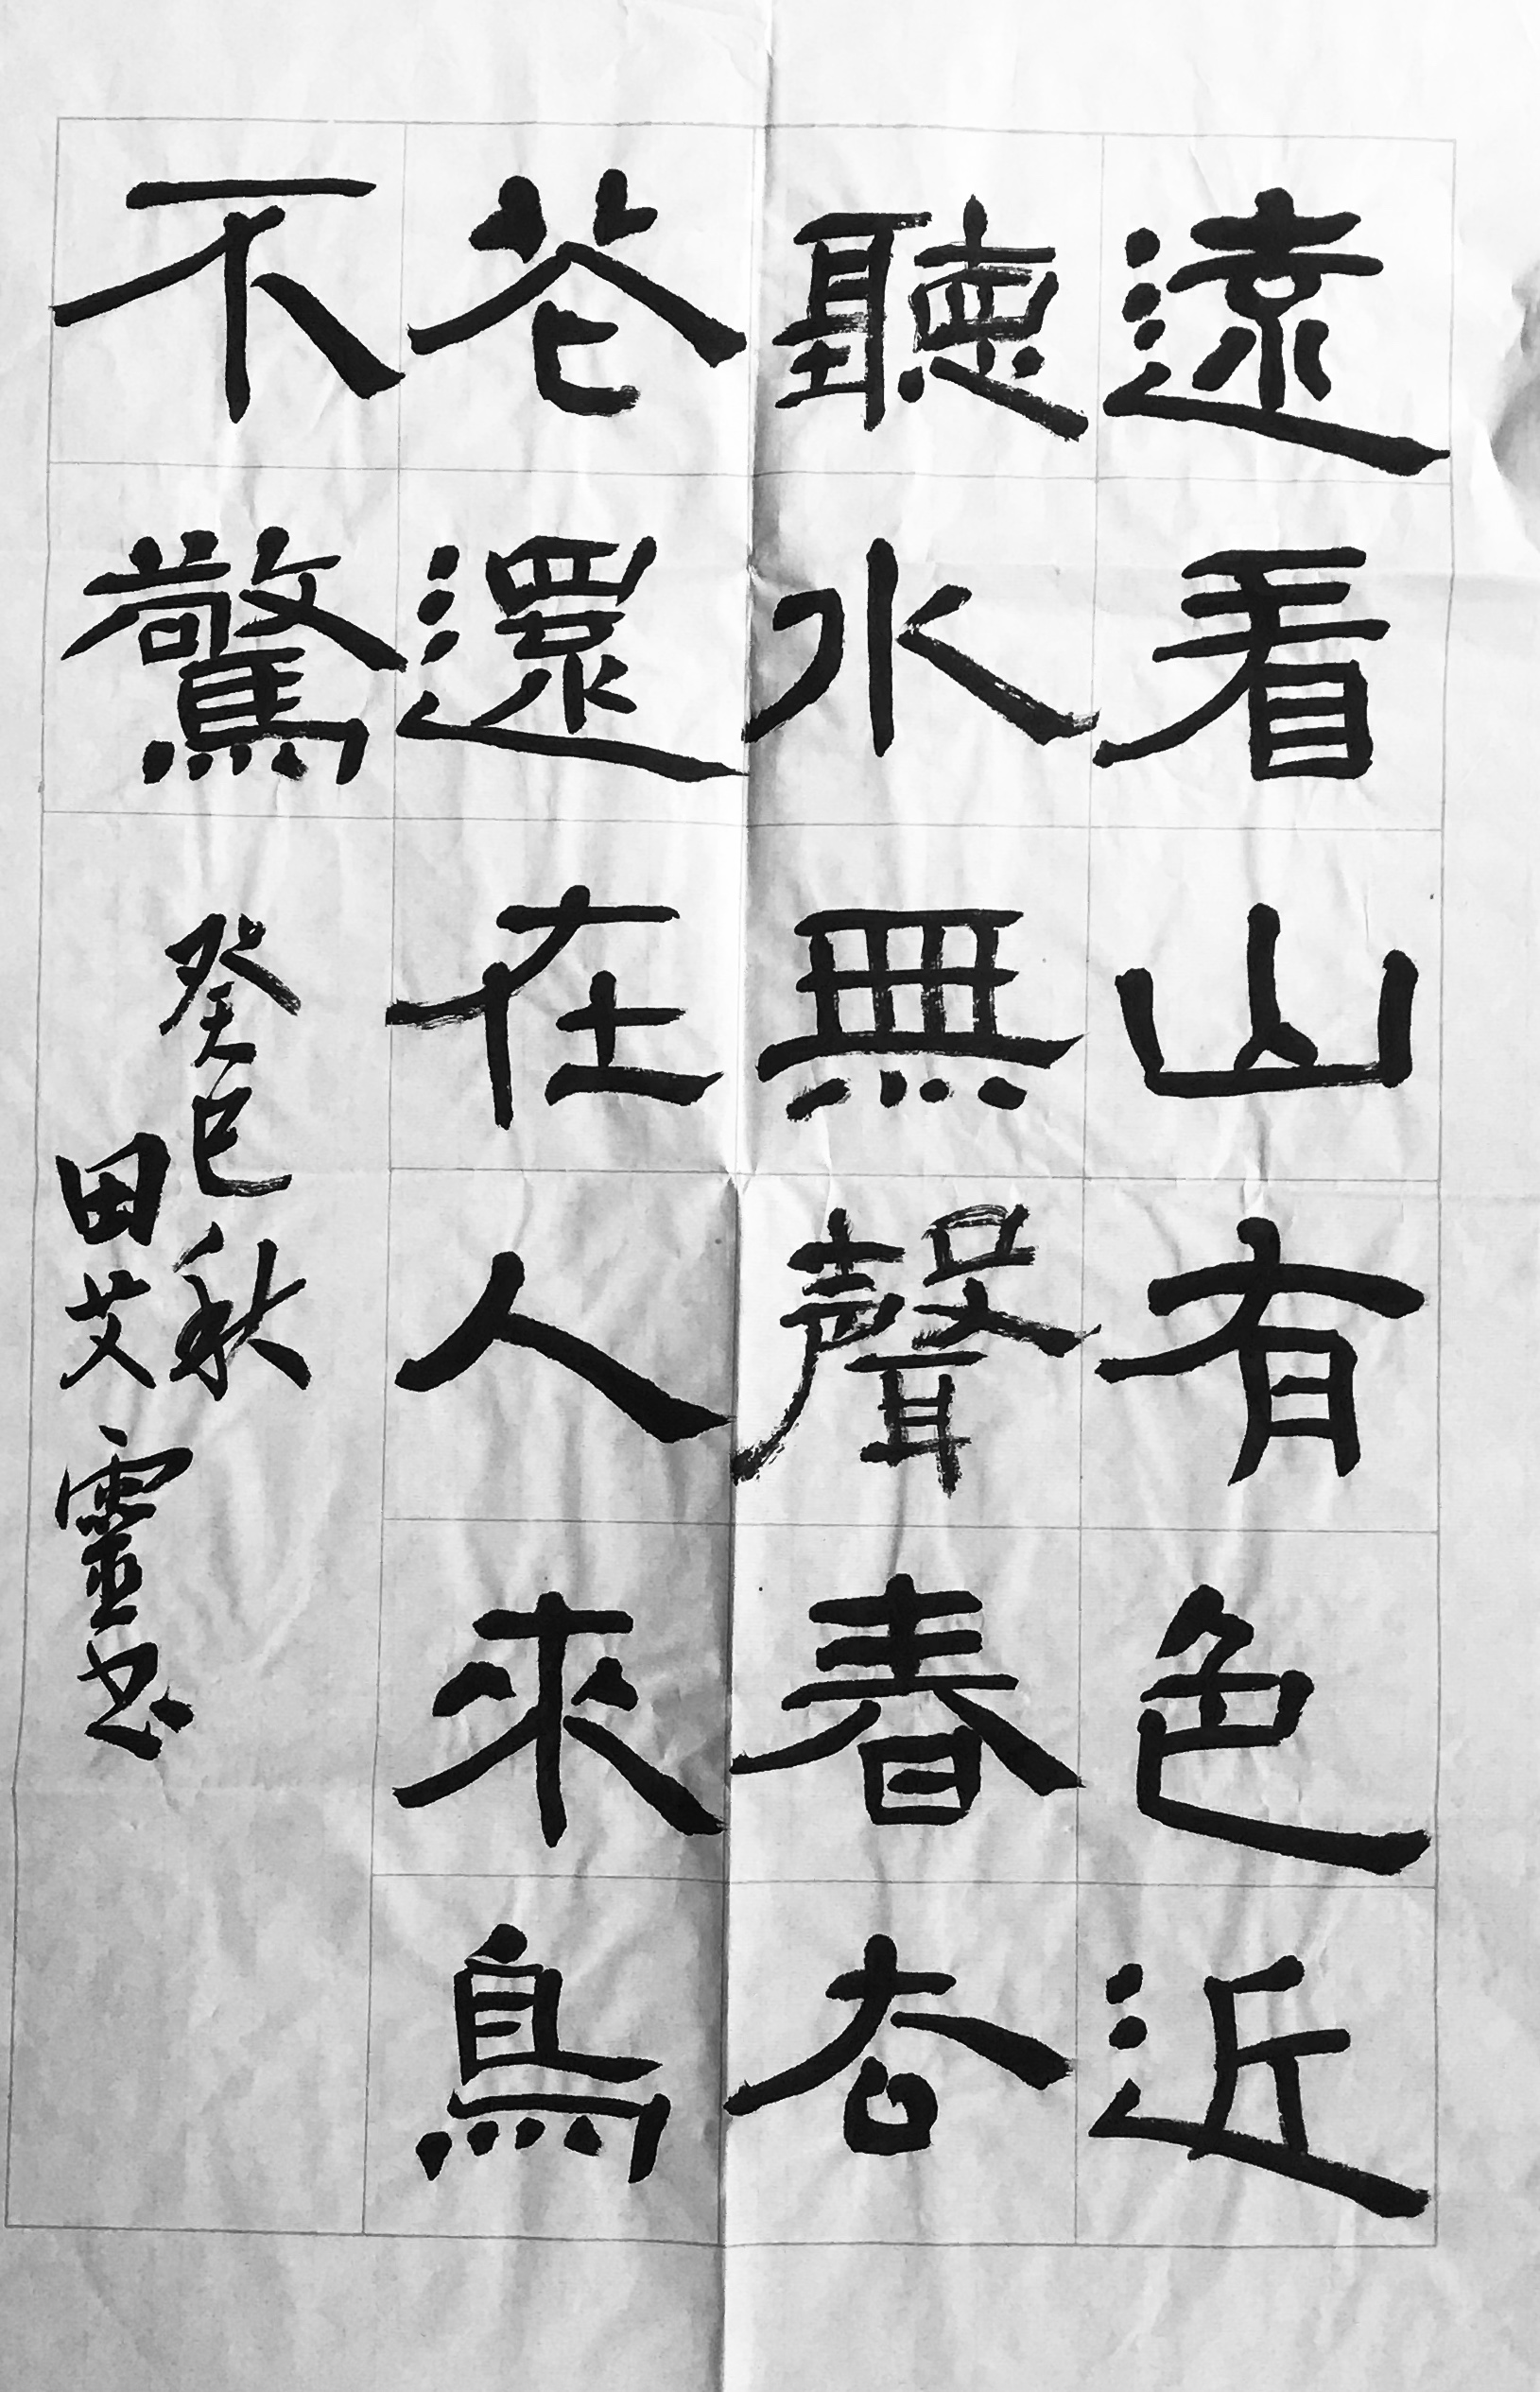 遠看山有色近
聽水無聲春去
花還在人來鳥
不驚
癸巳秋
田艾靈书